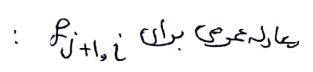 معادله عمومی برای f_{j+1,i} :